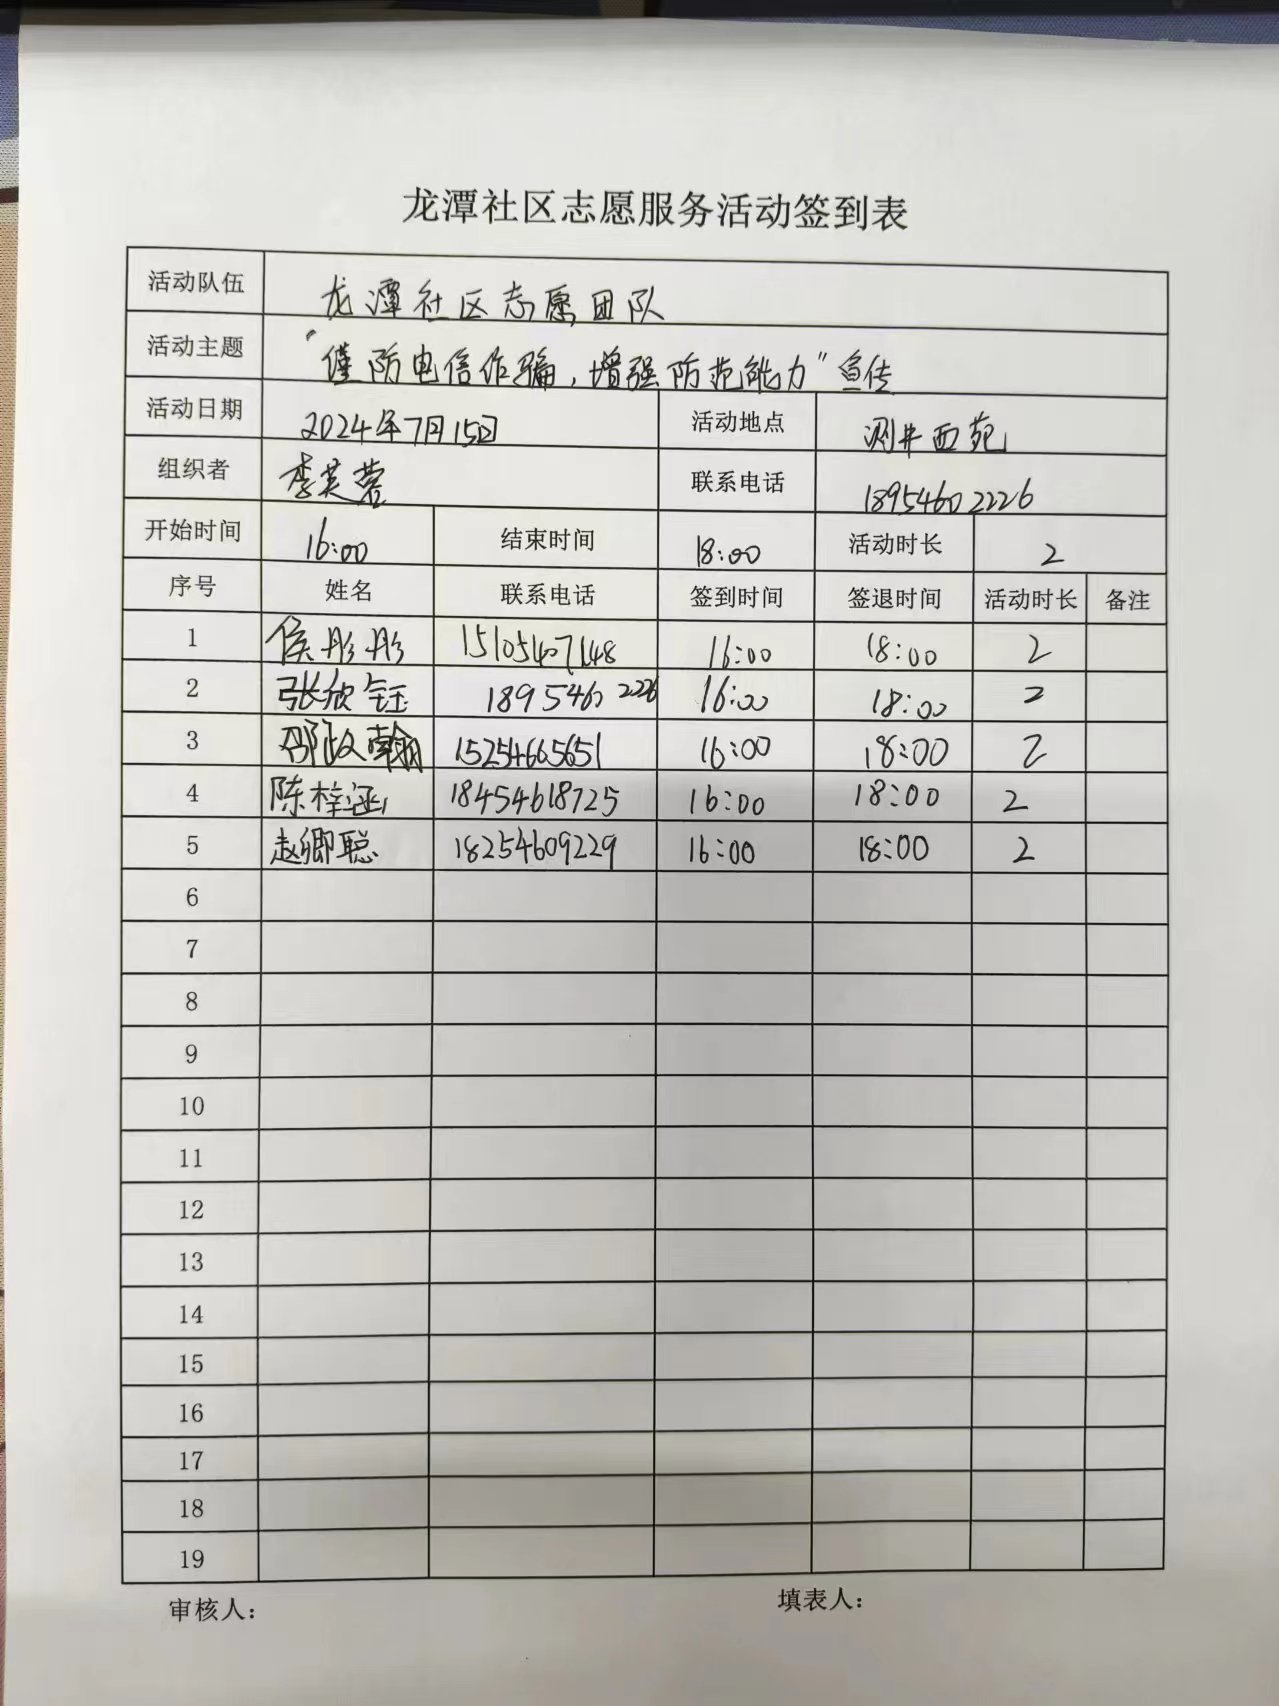 龙潭社区志愿服务活动签到表
活动队伍 龙潭社区志愿团队
活动主题 “谨防电信诈骗，增强防范能力”宣传
活动日期 2024年7月15日 活动地点 测井西苑
组织者 李芙蓉 联系电话 18954602226
开始时间 16:00 结束时间 18:00 活动时长 2
序号 姓名 联系电话 签到时间 签退时间 活动时长 备注
1 侯彤彤 15105407148 16:00 18:00 2
2 张欣钰 18954602226 16:00 18:00 2
3 邵政翰 15254665651 16:00 18:00 2
4 陈梓涵 18454618725 16:00 18:00 2
5 赵卿聪 18254609229 16:00 18:00 2
6
7
8
9
10
11
12
13
14
15
16
17
18
19
审核人： 填表人：